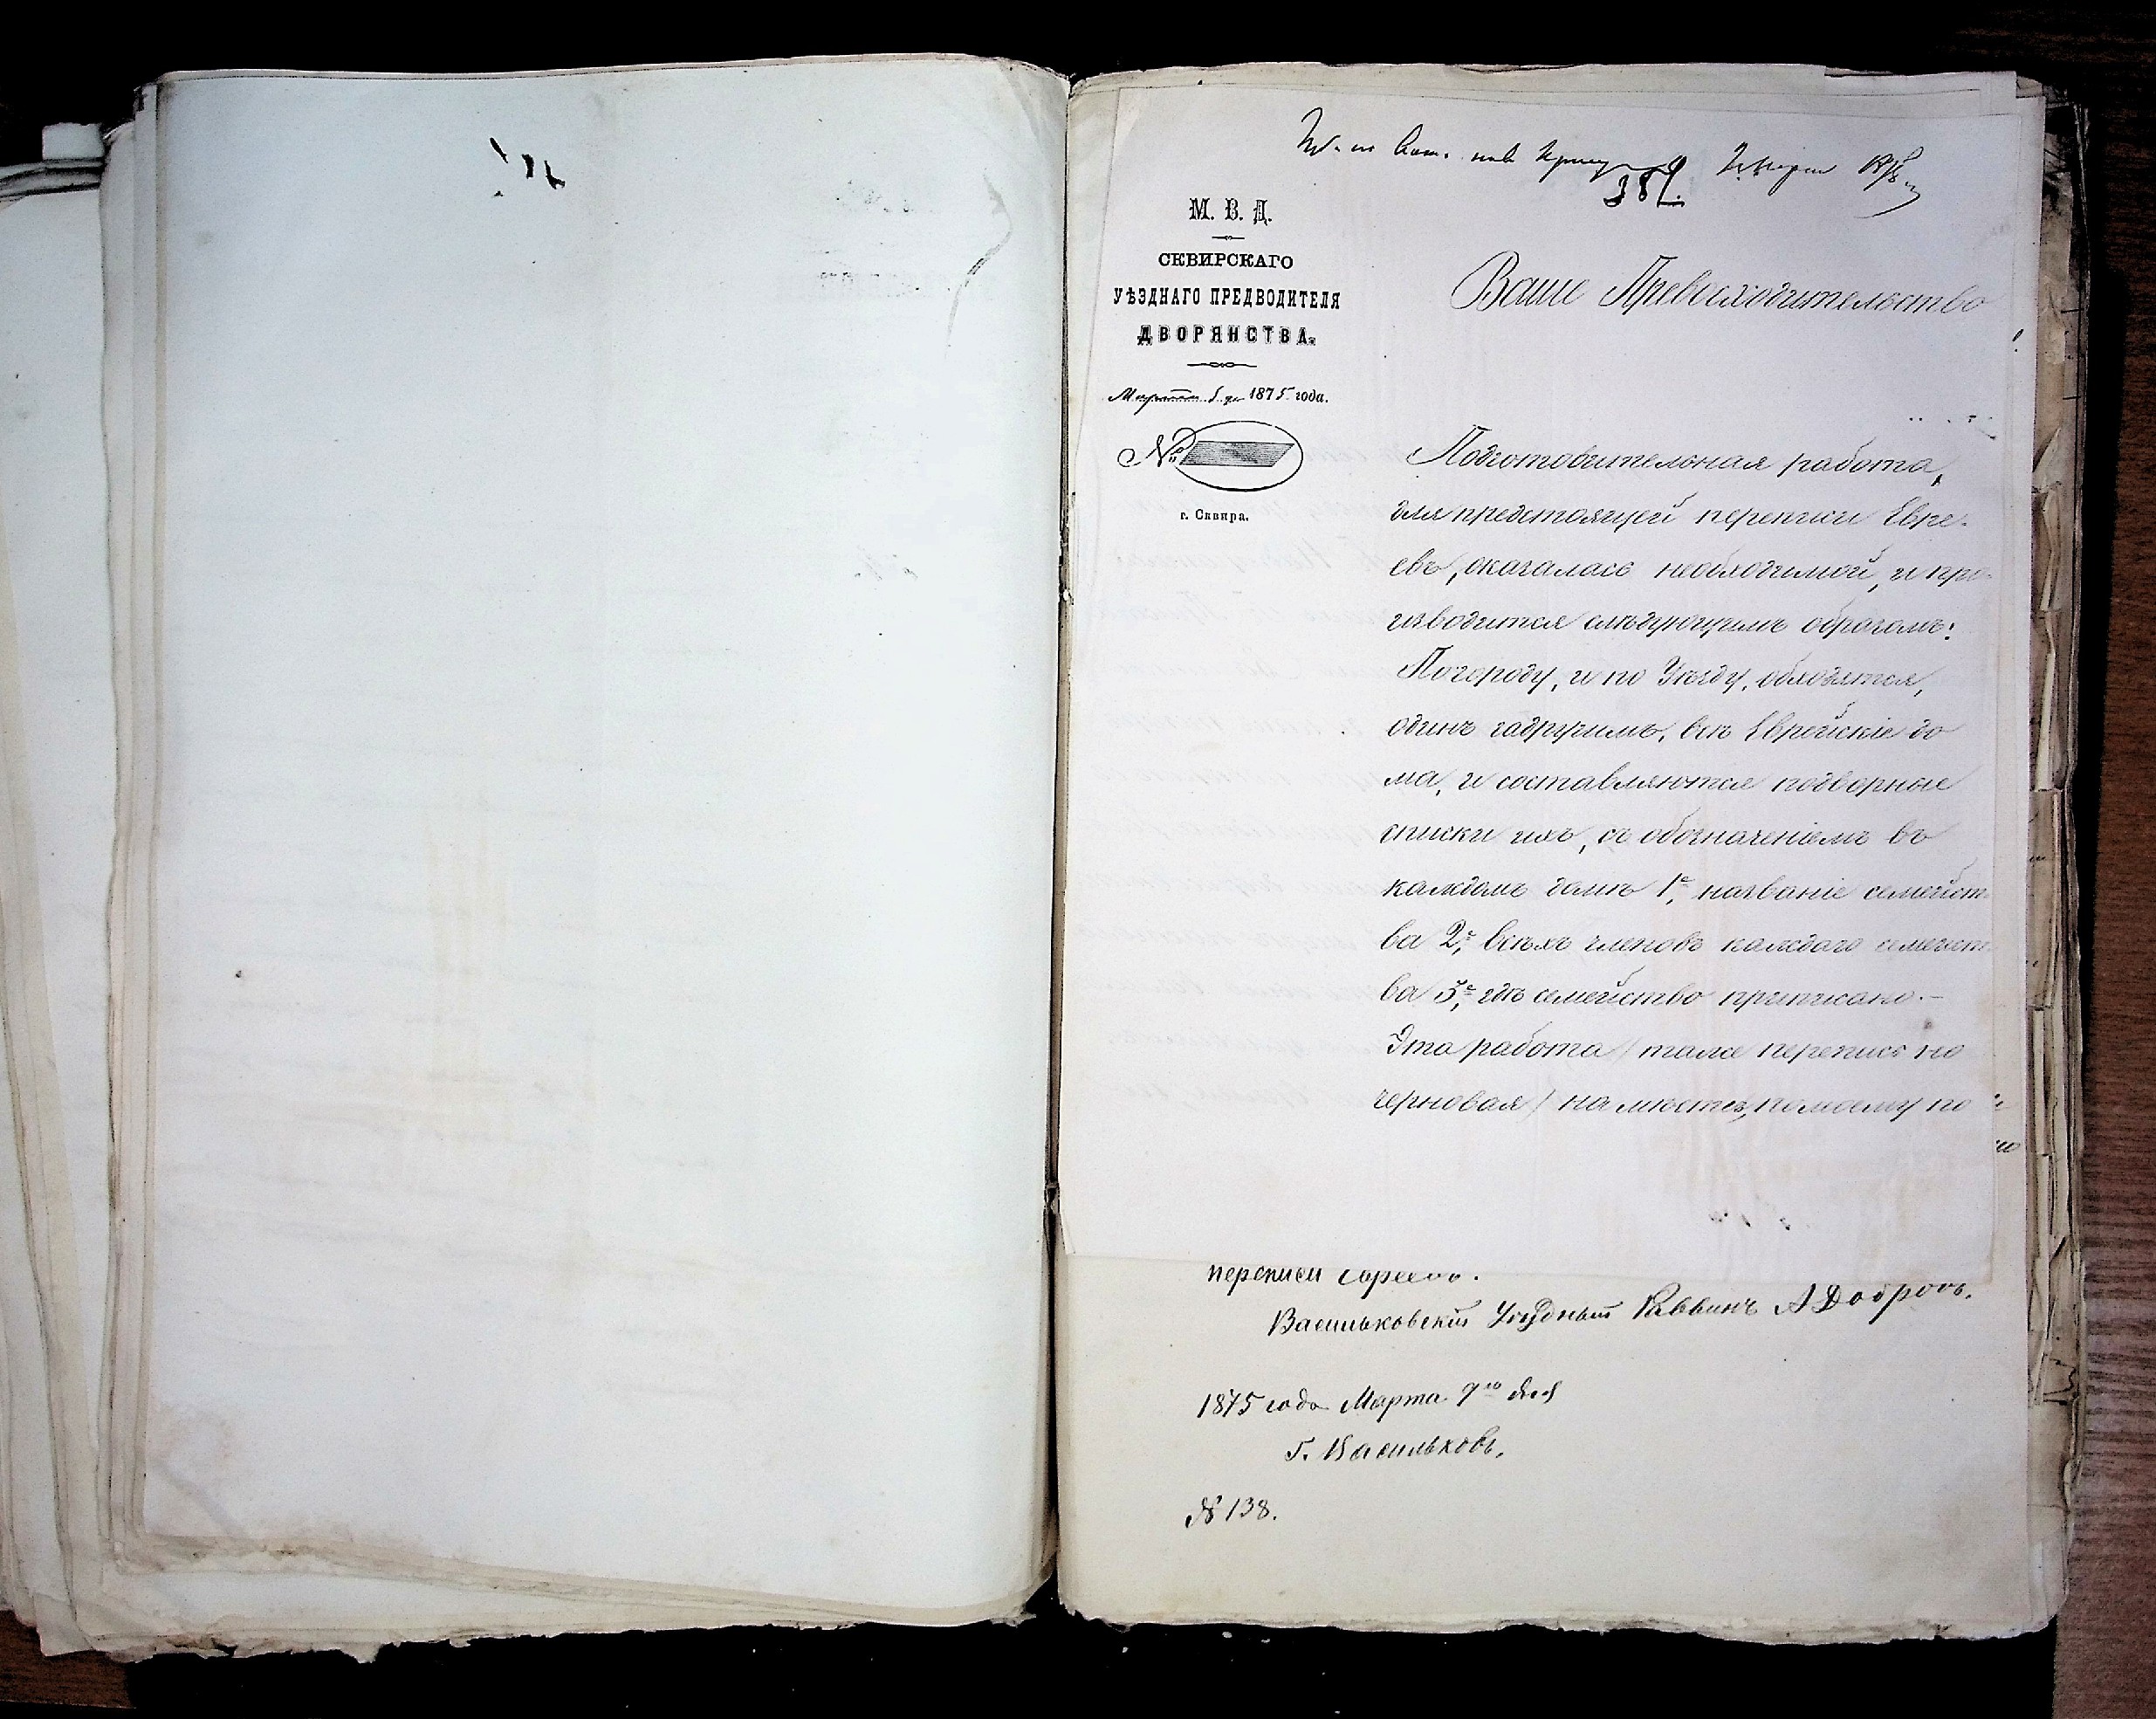 387.
М. В. Д.
СКВИРСКАГО
УѢЗДНАГО ПРЕДВОДИТЕЛЯ
ДВОРЯНСТВА.
Марта 5 дн 1875 года.
№
г. Сквира.
Ваше Превосходительство
Подготовительная работа,
для предстоящей переписи Евре-
евъ, оказалась необходимой, и про-
изводится слѣдующимъ образомъ:
По городу, и по Уѣзду, обходятся,
одинъ задругимъ, всѣ Еврейскіе до
ма, и составляются подворные
списки ихъ, съ обозначеніемъ въ
каждомъ домѣ 1е, названіе семейст-
ва 2е, всѣхъ членовъ каждаго семейст-
ва 3е, гдѣ семейство приписано.—
Эта работа / таже перепись но
черновая / на мѣстѣ, помоему по
переписи евреевъ.
Васильковскій Уѣздный Раввинъ А Добровъ.
1875 года Марта 9го дня
Г. Васильковъ.
№ 138.